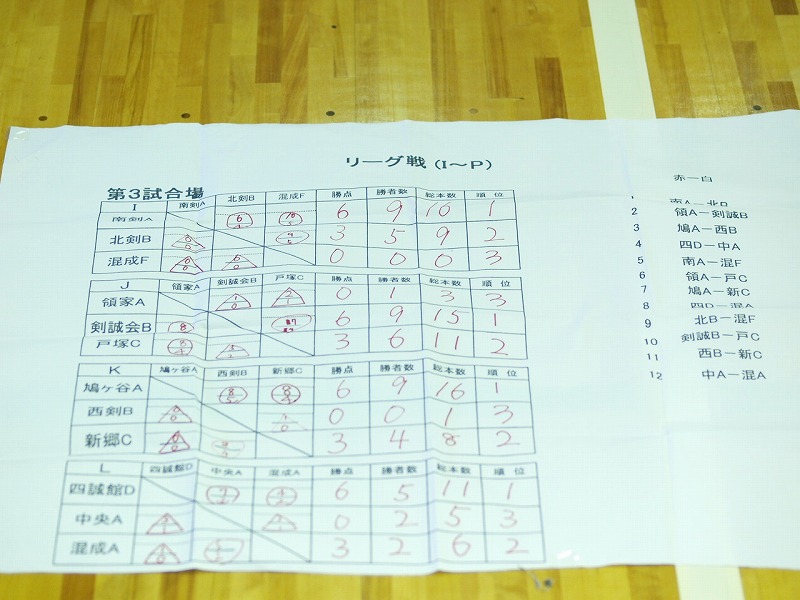 リーグ戦(I～P)
第3試合場
I 南剣A 北剣B 混成F 勝点 勝者数 総本数 順位
南剣A 6 9 10 1
北剣B 3 5 9 2
混成F 0 0 0 3
J 領家A 剣誠会B 戸塚C 勝点 勝者数 総本数 順位
領家A 0 1 3 3
剣誠会B 6 9 15 1
戸塚C 3 6 11 2
K 鳩ヶ谷A 西剣B 新郷C 勝点 勝者数 総本数 順位
鳩ヶ谷A 6 9 16 1
西剣B 0 0 1 3
新郷C 3 4 8 2
L 四誠館D 中央A 混成A 勝点 勝者数 総本数 順位
四誠館D 6 5 11 1
中央A 0 2 5 3
混成A 3 2 6 2
赤ー白
1 南A－北B
2 領A－剣誠B
3 鳩A－西B
4 四D－中A
5 南A－混F
6 領A－戸C
7 鳩A－新C
8 四D－混A
9 北B－混F
10 剣誠B－戸C
11 西B－新C
12 中A－混A